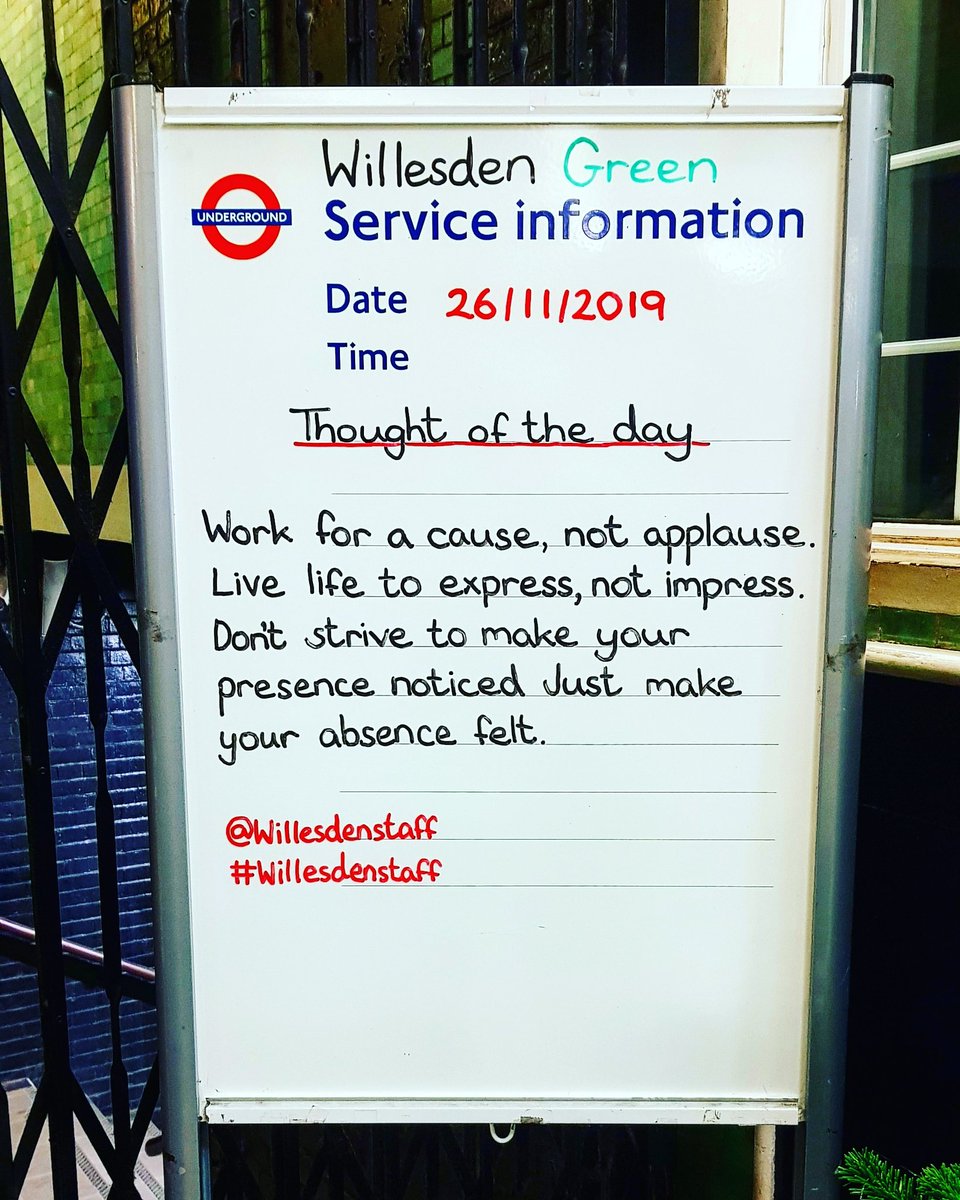 Willesden Green
UNDERGROUND
Service information
Date 26/11/2019
Time
Thought of the day
Work for a cause, not applause.
Live life to express, not impress.
Don't strive to make your
presence noticed Just make
your absence felt.
@Willesdenstaff
#Willesdenstaff